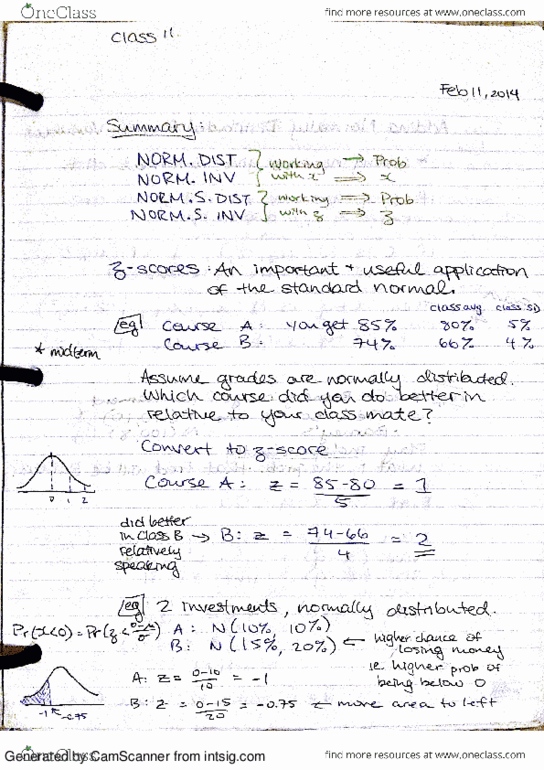 OneClass find more resources at www.oneclass.com
class 11
Feb 11, 2014
Summary:
NORM. DIST } working → Prob
NORM. INV with x ⇒ x
NORM. S. DIST } working ⇒ Prob
NORM. S. INV with z ⇒ z
z-scores. An important + useful application
of the standard normal.
class avg class SD
eg Course A: you get 85% 80% 5%
Course B: 74% 66% 4%
* midterm
Assume grades are normally distributed.
Which course did you do better in
relative to your class mate?
Convert to z-score
Course A: z = 85-80 / 5 = 1
0 1 2
did better
in class B → B: z = 74-66 / 4 = 2
relatively
speaking
eg 2 investments, normally distributed.
Pr(x<0) = Pr(z < 0-μ/σ) A: N(10%, 10%)
B: N(15%, 20%) ← higher chance of
losing money
ie higher prob of
being below 0
A: z = 0-10 / 10 = -1
B: z = 0-15 / 20 = -0.75 ← more area to left
-1 -0.75
Generated by CamScanner from intsig.com
OneClass find more resources at www.oneclass.com